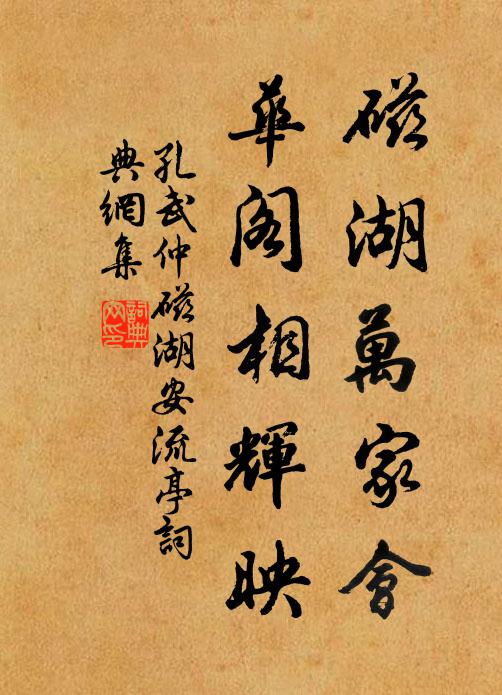 磁湖萬家會
華閣相輝映
孔武仲磁湖安流亭詞
典網集
詞典
网印